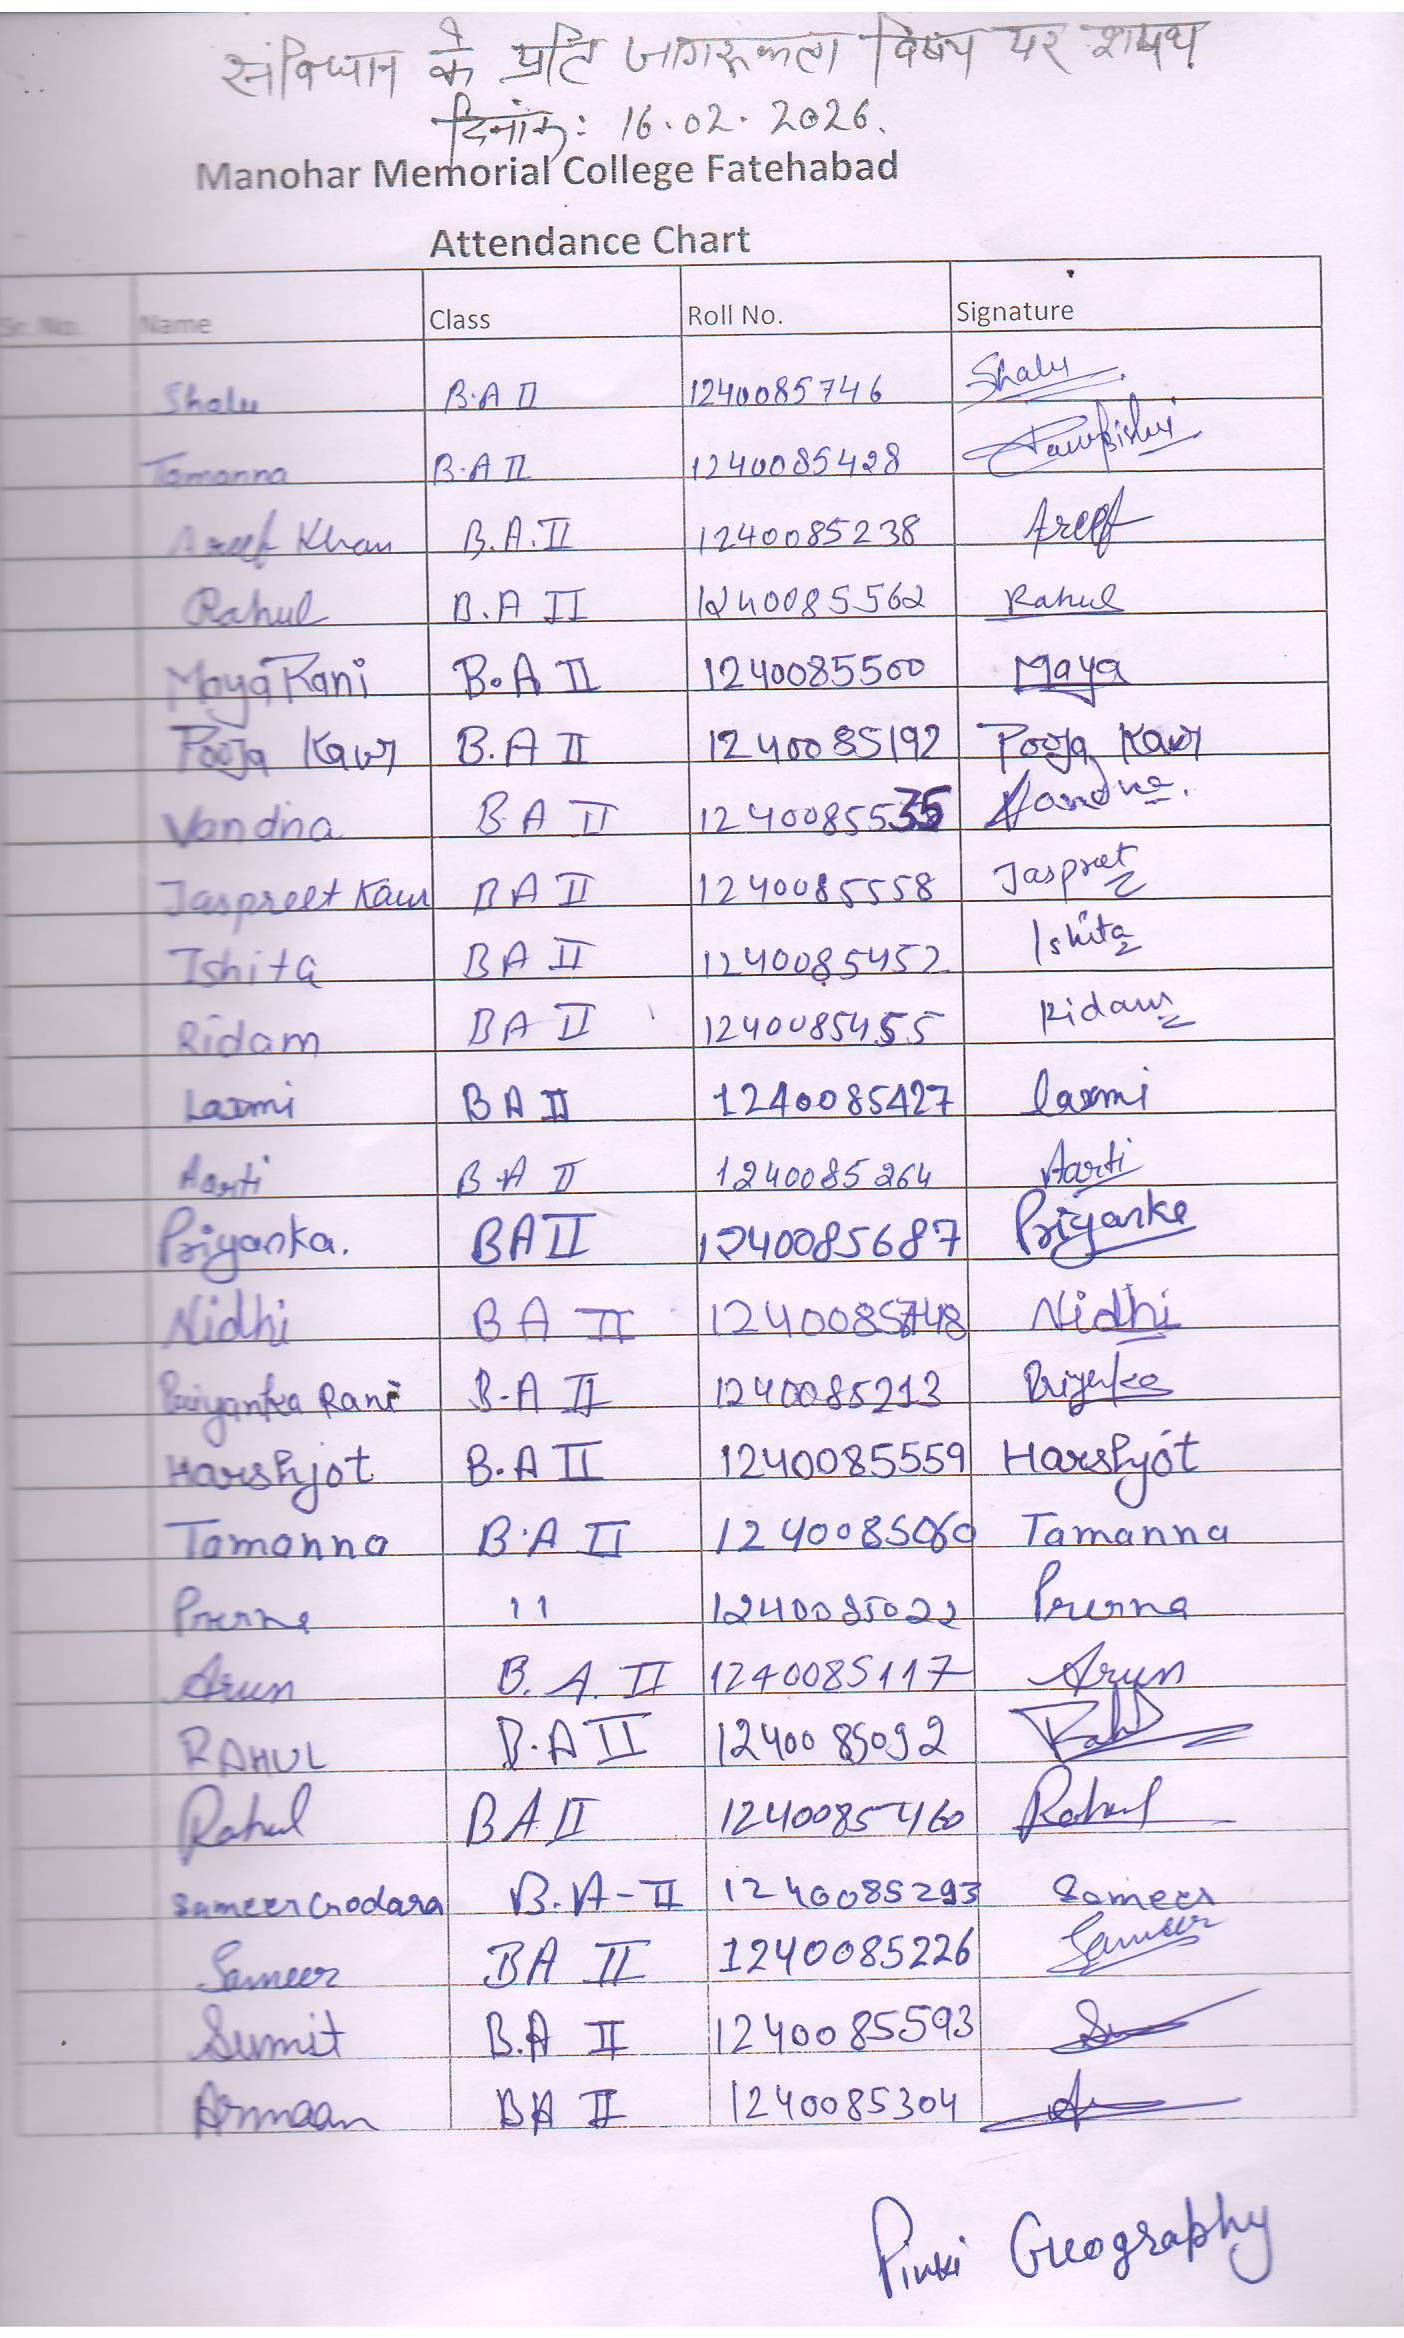 संविधान के प्रति जागरूकता विषय पर शपथ
दिनांक: 16.02.2026.
Manohar Memorial College Fatehabad
Attendance Chart
Sr. No. Name Class Roll No. Signature
Shalu B.A II 1240085746 Shalu
Tamanna B.A II 1240085428
Areef Khan B.A.II 1240085238 Areef
Rahul B.A II 1240085562 Rahul
Maya Rani B.A II 1240085500 Maya
Pooja Kaur B.A II 1240085192 Pooja Kaur
Vandna BA II 1240085535 Vandna.
Jaspreet Kaur BA II 1240085558 Jaspreet
Ishita BA II 1240085452 Ishita
Ridam BA II 1240085455 Ridam
Laxmi BA II 1240085427 laxmi
Aarti B A II 1240085264 Aarti
Priyanka. BA II 1240085687 Priyanka
Nidhi BA II 1240085748 Nidhi
Priyanka Rani B-A II 1240085213 Priyanka
Harshjot B.A II 1240085559 Harshjot
Tamanna B.A II 1240085060 Tamanna
Prerna 11 1240085022 Prerna
Arun B.A. II 1240085117 Arun
RAHUL B.A II 1240085092 Rahul
Rahul BA II 1240085460 Rahul
Sameer Godara B.A-II 1240085293 Sameer
Sameer BA II 1240085226 Sameer
Sumit B.A II 1240085593
Armaan BA II 1240085304
Pinki Geography